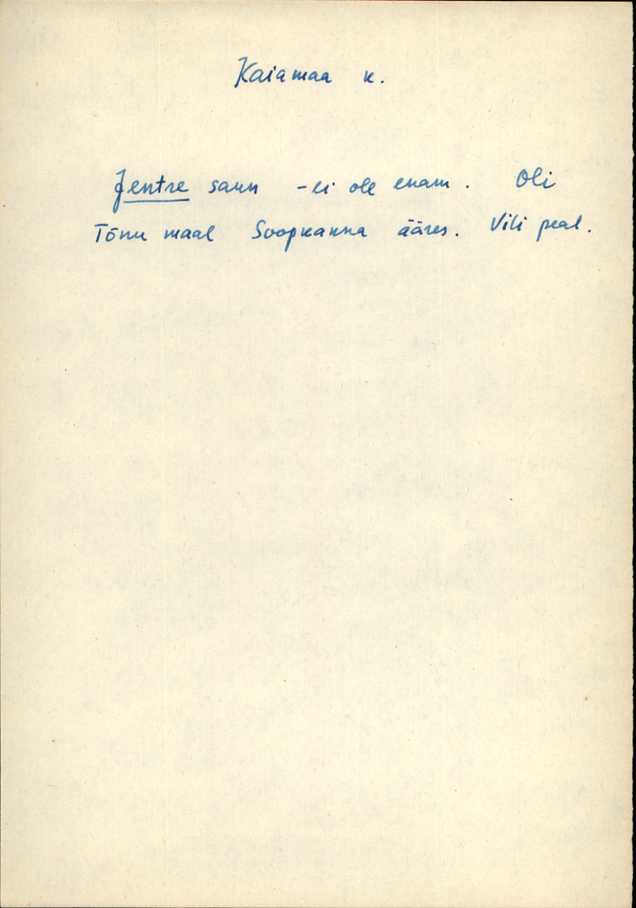 Kaiamaa k.
Jentre saun - ei ole enam. Oli
Tõnu maal Soopkanna ääres. Vili peal.